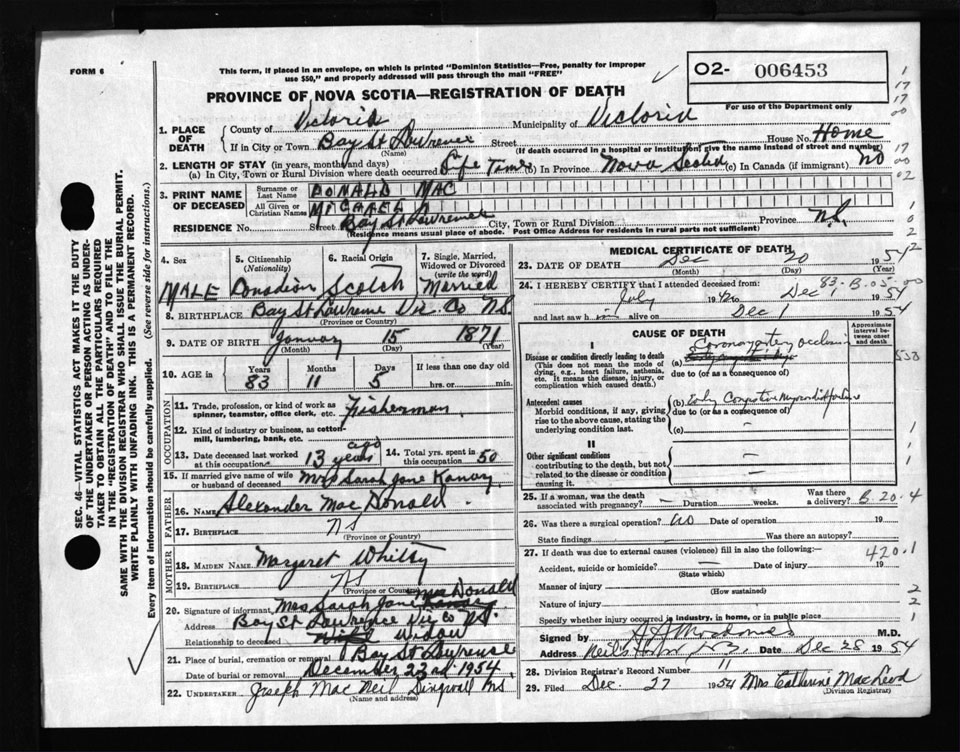 FORM 6
This form, if placed in an envelope, on which is printed "Dominion Statistics—Free, penalty for improper
use $50," and properly addressed will pass through the mail "FREE"
O2- 006453
PROVINCE OF NOVA SCOTIA—REGISTRATION OF DEATH
For use of the Department only
1. PLACE OF DEATH
County of Victoria Municipality of Victoria
If in City or Town Bay St Lawrence Street House No. Home
(Name) (If death occurred in a hospital or institution, give the name instead of street and number)
2. LENGTH OF STAY (in years, months and days)
(a) In City, Town or Rural Division where death occurred Life Time (b) In Province Nova Scotia (c) In Canada (if immigrant) NO
3. PRINT NAME OF DECEASED
Surname or Last Name DONALD MAC
All Given or Christian Names MICHAEL
RESIDENCE No. Street Bay St Lawrence City, Town or Rural Division Province N.S.
(Residence means usual place of abode. Post Office Address for residents in rural parts not sufficient)
4. Sex
5. Citizenship (Nationality)
6. Racial Origin
7. Single, Married, Widowed or Divorced (write the word)
MALE Canadian Scotch Married
8. BIRTHPLACE Bay St Lawrence Vic. Co N.S.
(Province or Country)
9. DATE OF BIRTH January 15 1871
(Month) (Day) (Year)
10. AGE in Years Months Days If less than one day
83 11 5 hrs. or min.
OCCUPATION
11. Trade, profession, or kind of work as spinner, teamster, office clerk, etc. Fisherman
12. Kind of industry or business, as cotton-mill, lumbering, bank, etc.
13. Date deceased last worked at this occupation 13 years ago
14. Total yrs. spent in this occupation 50
15. If married give name of wife or husband of deceased Mrs Sarah Jane
FATHER
16. NAME Alexander Mac Donald
17. BIRTHPLACE NS
(Province or Country)
MOTHER
18. MAIDEN NAME Margaret Whitty
19. BIRTHPLACE NS
(Province or Country)
20. Signature of informant Mrs Sarah Jane MacDonald
Address Bay St Lawrence Vic Co NS.
Relationship to deceased Widow
21. Place of burial, cremation or removal Bay St Lawrence
Date of burial or removal December 22nd 1954
22. UNDERTAKER Joseph Mac Neil Dingwall NS
(Name and address)
MEDICAL CERTIFICATE OF DEATH
23. DATE OF DEATH Dec 20 1954
(Month) (Day) (Year)
24. I HEREBY CERTIFY that I attended deceased from:
July 1942 to Dec 1 1954
and last saw h im alive on Dec 1 1954
83-B.05-00
CAUSE OF DEATH
Approximate interval between onset and death
I
Disease or condition directly leading to death (This does not mean the mode of dying, e.g., heart failure, asthenia, etc. It means the disease, injury, or complication which caused death.)
(a) Coronary artery occlusion
due to (or as a consequence of)
Antecedent causes
Morbid conditions, if any, giving rise to the above cause, stating the underlying condition last.
(b)
due to (or as a consequence of)
(c) —
II
Other significant conditions contributing to the death, but not related to the disease or condition causing it.
25. If a woman, was the death associated with pregnancy? — Duration weeks. Was there a delivery?
B.20.4
26. Was there a surgical operation? No Date of operation 19
State findings Was there an autopsy?
27. If death was due to external causes (violence) fill in also the following:—
420.1
Accident, suicide or homicide? — Date of injury 19
(State which)
Manner of injury
(How sustained)
Nature of injury
Specify whether injury occurred in industry, in home, or in public place
Signed by M.D.
Address Neil's Harbor N.S. Date Dec 28 1954
28. Division Registrar's Record Number 11
29. Filed Dec. 27 1954 Mrs Catherine MacLeod
(Division Registrar)
SEC. 46—VITAL STATISTICS ACT MAKES IT THE DUTY
OF THE UNDERTAKER OR PERSON ACTING AS UNDER-
TAKER TO OBTAIN ALL THE PARTICULARS REQUIRED
IN THE "REGISTRATION OF DEATH" AND TO FILE THE
SAME WITH THE DIVISION REGISTRAR WHO SHALL ISSUE THE BURIAL PERMIT.
WRITE PLAINLY WITH UNFADING INK. THIS IS A PERMANENT RECORD.
Every item of information should be carefully supplied. (See reverse side for instructions.)